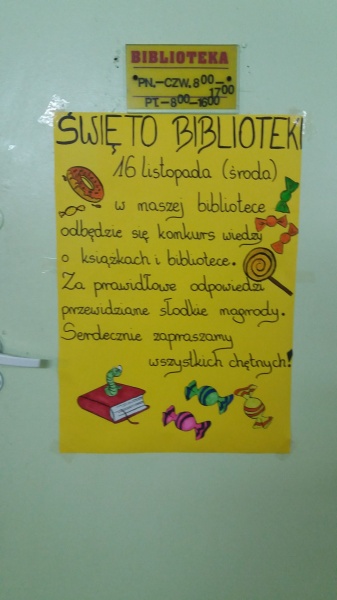 BIBLIOTEKA
PN.-CZW. 8⁰⁰-17⁰⁰
PT.-8⁰⁰-16⁰⁰
ŚWIĘTO BIBLIOTEKI
16 listopada (środa)
w naszej bibliotece
odbędzie się konkurs wiedzy
o książkach i bibliotece.
Za prawidłowe odpowiedzi
przewidziane słodkie nagrody.
Serdecznie zapraszamy
wszystkich chętnych!